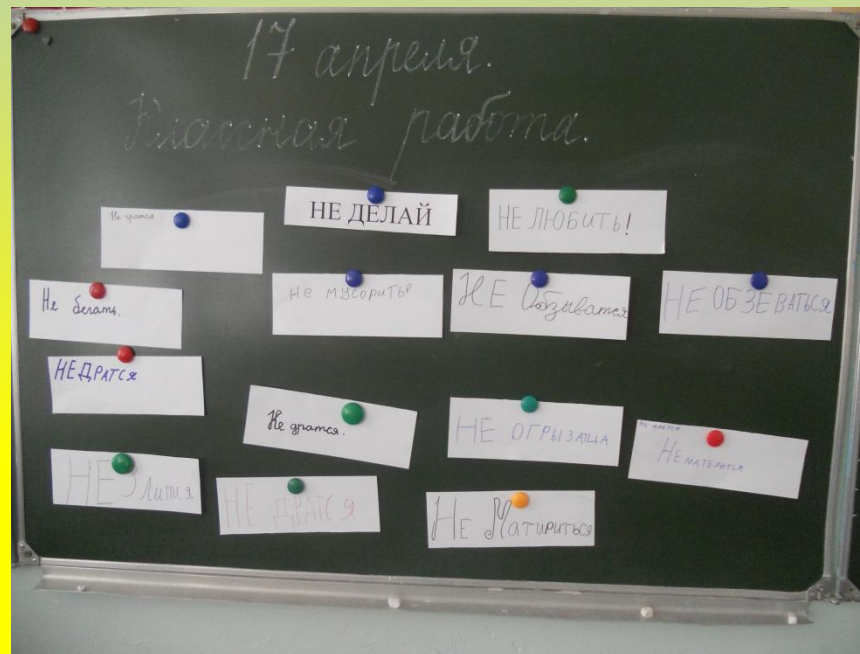 17 апреля.
Классная работа.
Не дратся
НЕ ДЕЛАЙ
НЕ ЛЮБИТЬ!
Не бегать.
Не мусорить
НЕ Обзыватся
НЕ ОБЗЕВАТЬСЯ
НЕ ДРАТСЯ
Не дратся.
НЕ ОГРЫЗАЦЦА
НЕ МАТЕРИТСЯ
НЕ Злится
НЕ ДРАТСЯ
НЕ Матириться